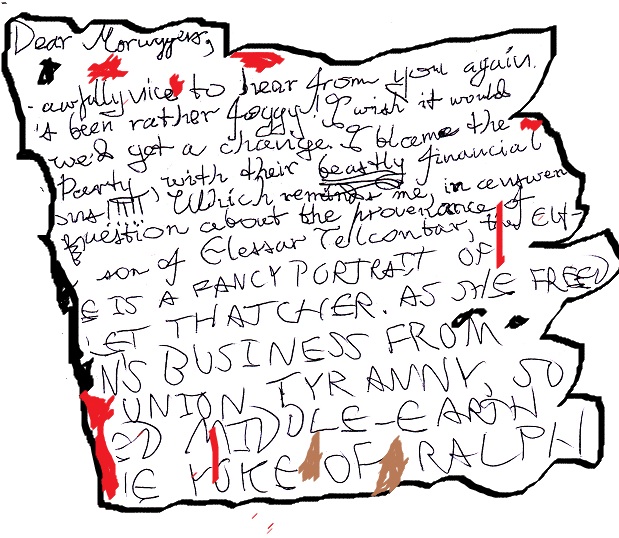 Dear Morwyggers,
awfully nice to hear from you again.
's been rather foggy! I wish it would
we'd get a change. I blame the
Party, with their beastly financial
sns!!!!! Which reminds me, in answer
question about the provenance of
son of Elessar Telcontar, the Elf-
E IS A FANCY PORTRAIT OF
ET THATCHER. AS SHE FREED
NS BUSINESS FROM
UNION TYRANNY, SO
ED MIDDLE-EARTH
HE YOKE OF RALPH